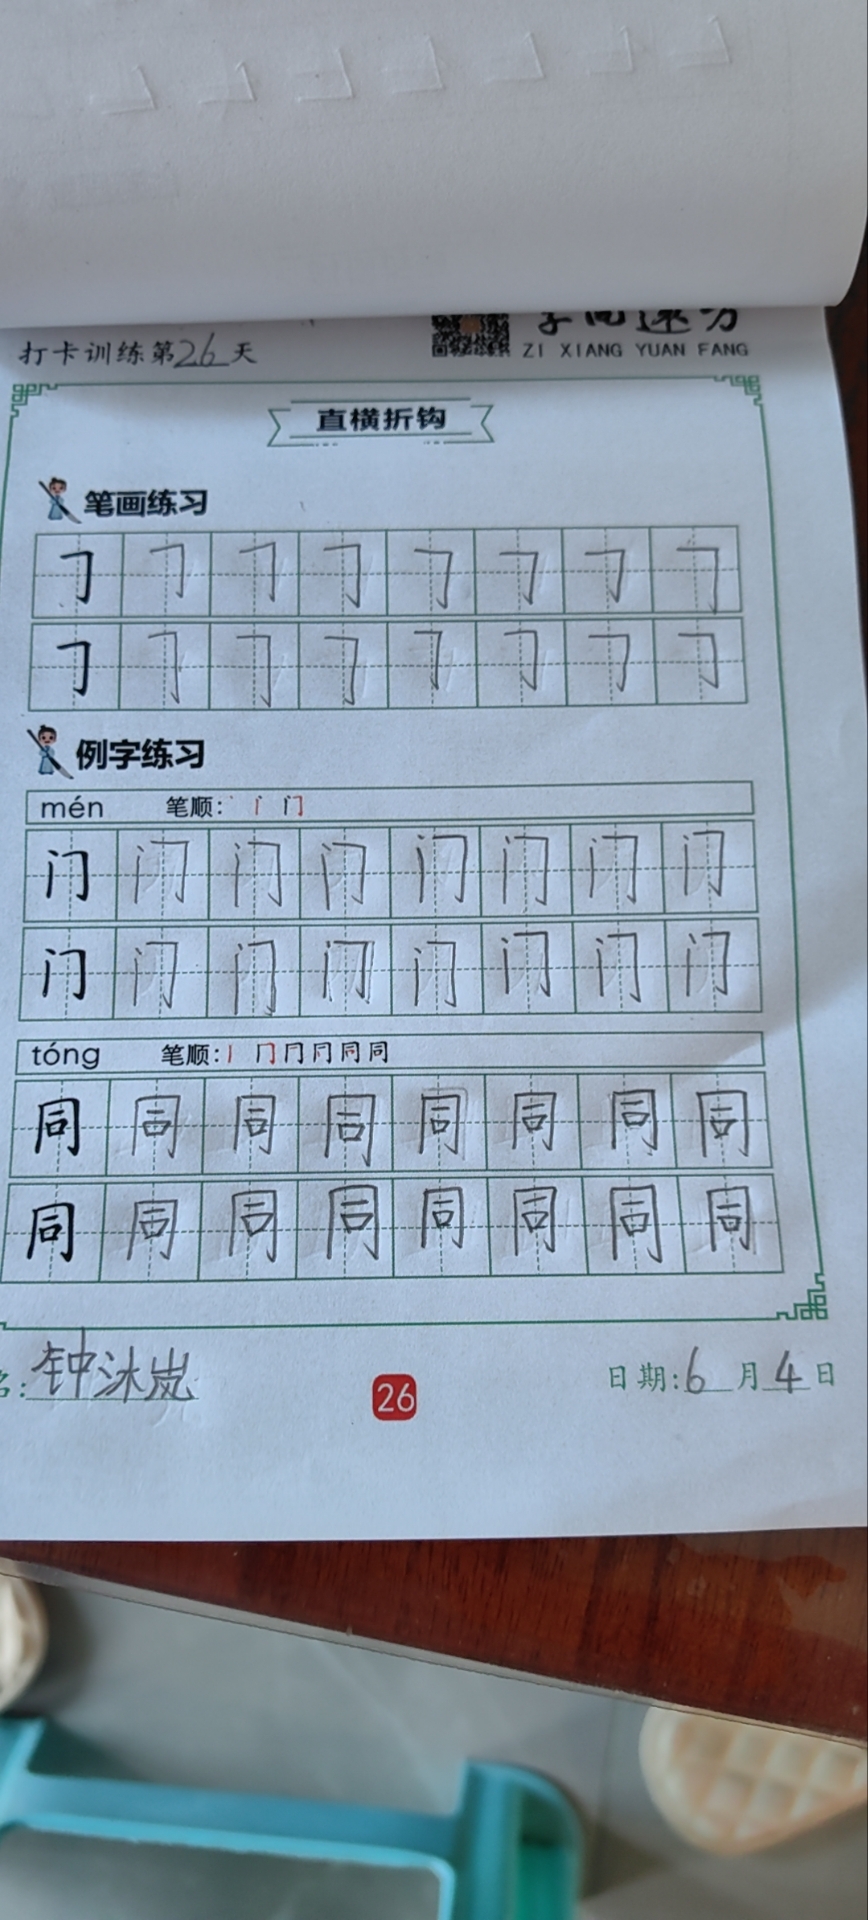 ZI XIANG YUAN FANG
打卡训练第26天
直横折钩
笔画练习
㇆ ㇆ ㇆ ㇆ ㇆ ㇆ ㇆ ㇆
㇆ ㇆ ㇆ ㇆ ㇆ ㇆ ㇆ ㇆
例字练习
mén 笔顺: 丶 门
门 门 门 门 门 门 门 门
门 门 门 门 门 门 门 门
tóng 笔顺: 丨 冂 同 同
同 同 同 同 同 同 同 同
同 同 同 同 同 同 同 同
名: 钟沐岚
26
日期: 6月4日